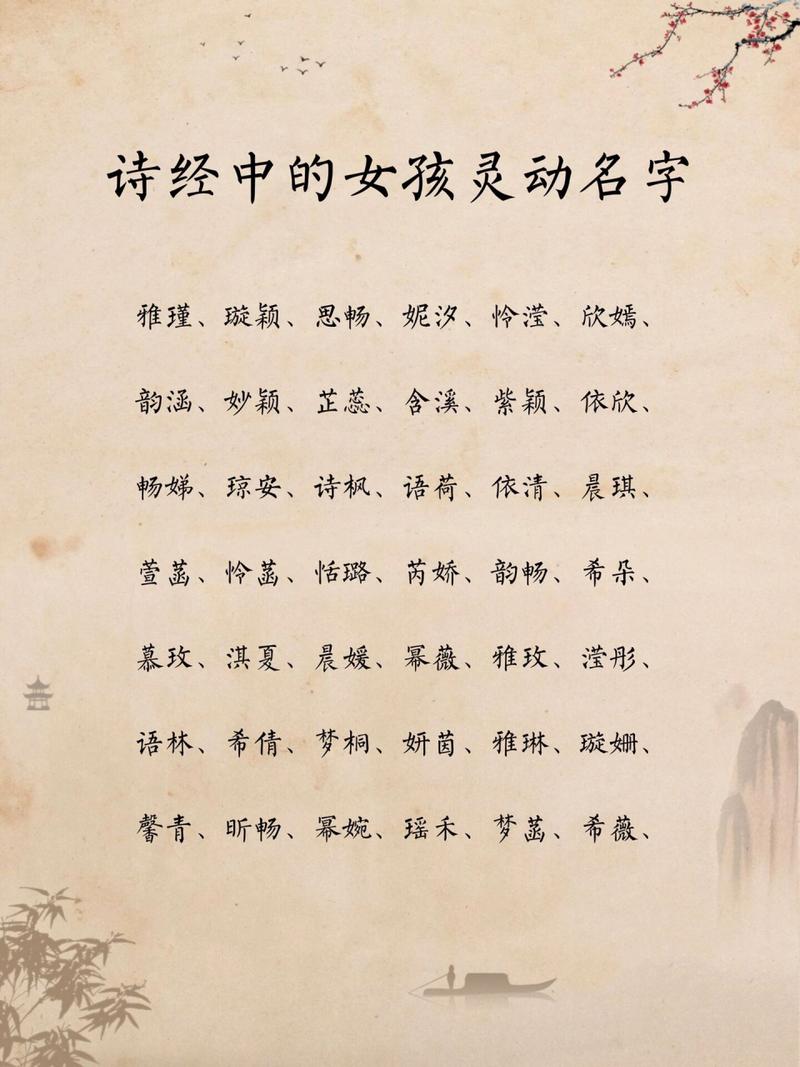 诗经中的女孩灵动名字
雅瑾、璇颖、思畅、妮汐、怜滢、欣嫣、
韵涵、妙颖、芷蕊、含溪、紫颖、依欣、
畅娣、琼安、诗枫、语荷、依清、晨琪、
萱菡、怜菡、恬璐、芮娇、韵畅、希朵、
慕玫、淇夏、晨媛、幂薇、雅玫、滢彤、
语林、希倩、梦桐、妍茵、雅琳、璇姗、
馨青、昕畅、幂婉、瑶禾、梦菡、希薇、